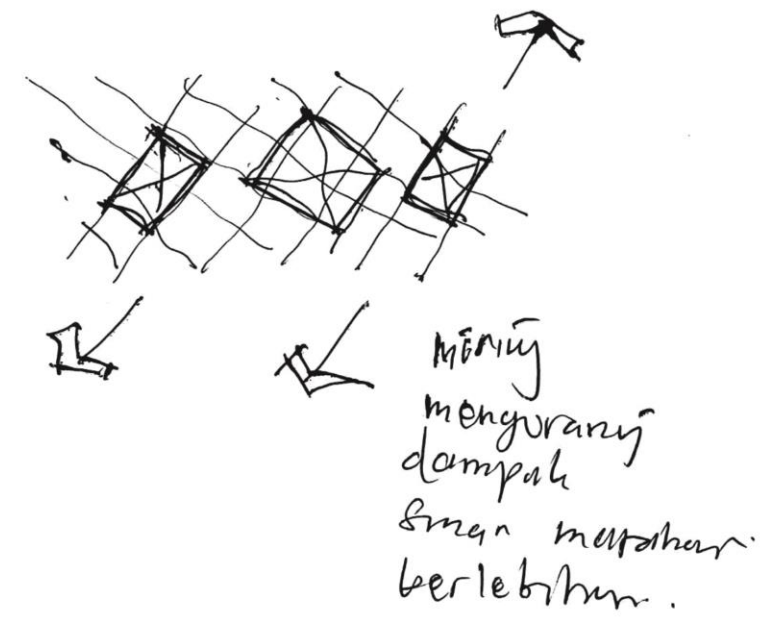 Miring
mengurangi
dampak
sinar matahari
berlebihan.